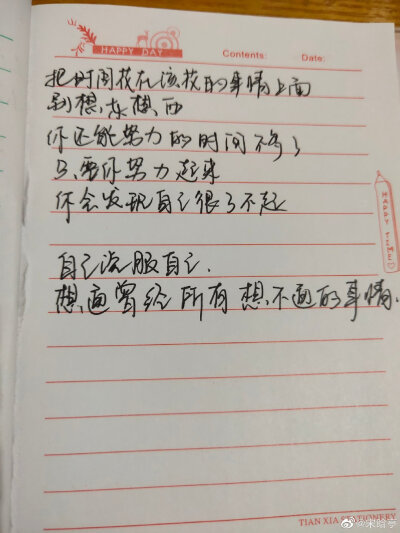 HAPPY DAY
Contents: Date:
把时间花在该花的事情上面
别想东想西
你还能努力的时间不多了
只要你努力起来
你会发现自己很了不起
自己说服自己.
想通曾经所有想不通的事情.
HAPPY TIME
TIAN XIA STATIONERY